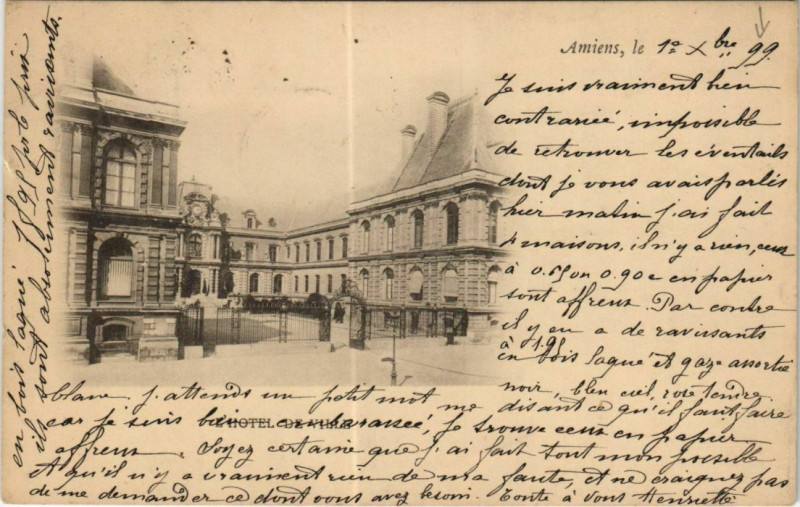 Amiens, le 1er Xbre 99.
Je suis vraiment bien
contrariée, impossible
de retrouver les éventails
dont je vous avais parlés
hier matin j'ai fait
4 maisons, il n'y a rien, ceux
à 0.65 ou 0.90c en papier
sont affreux. Par contre
il y en a de ravissants
à 1.95
en bois laqué et gaze assortie
noir, bleu ciel, rose tendre
blanc. J'attends un petit mot me disant ce qu'il faut faire
car je suis bien embarrassée, je trouve ceux en papier
HOTEL DE VILLE
affreux. Soyez certaine que j'ai fait tout mon possible
et qu'il n'y a vraiment rien de ma faute, et ne craignez pas
de me demander ce dont vous avez besoin. Toute à vous Henriette
en bois laqué 1f95 joli prix
ils sont absolument ravissants.